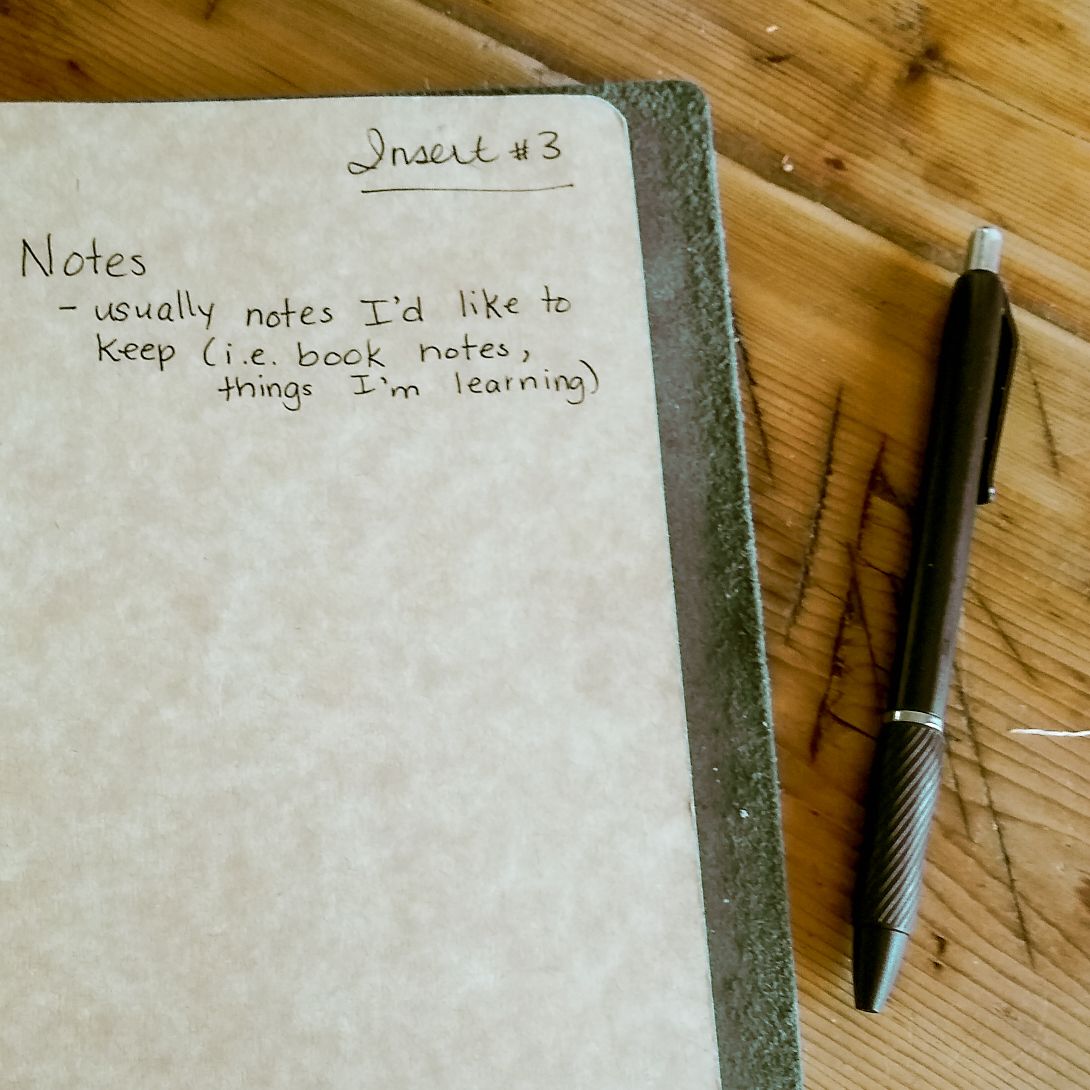 Insert #3
Notes
- usually notes I'd like to
keep (i.e. book notes,
things I'm learning)